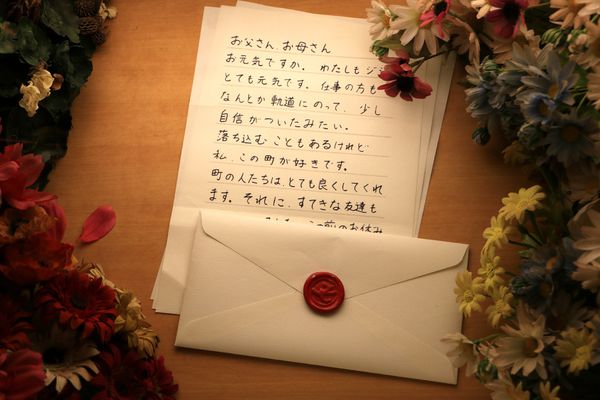 お父さん、お母さん
お元気ですか。わたしもジ
とても元気です。仕事の方も
なんとか軌道にのって、少し
自信がついたみたい。
落ち込むこともあるけれど
私、この町が好きです。
町の人たちは、とても良くしてくれ
ます。それに、すてきな友達も
前のお休み